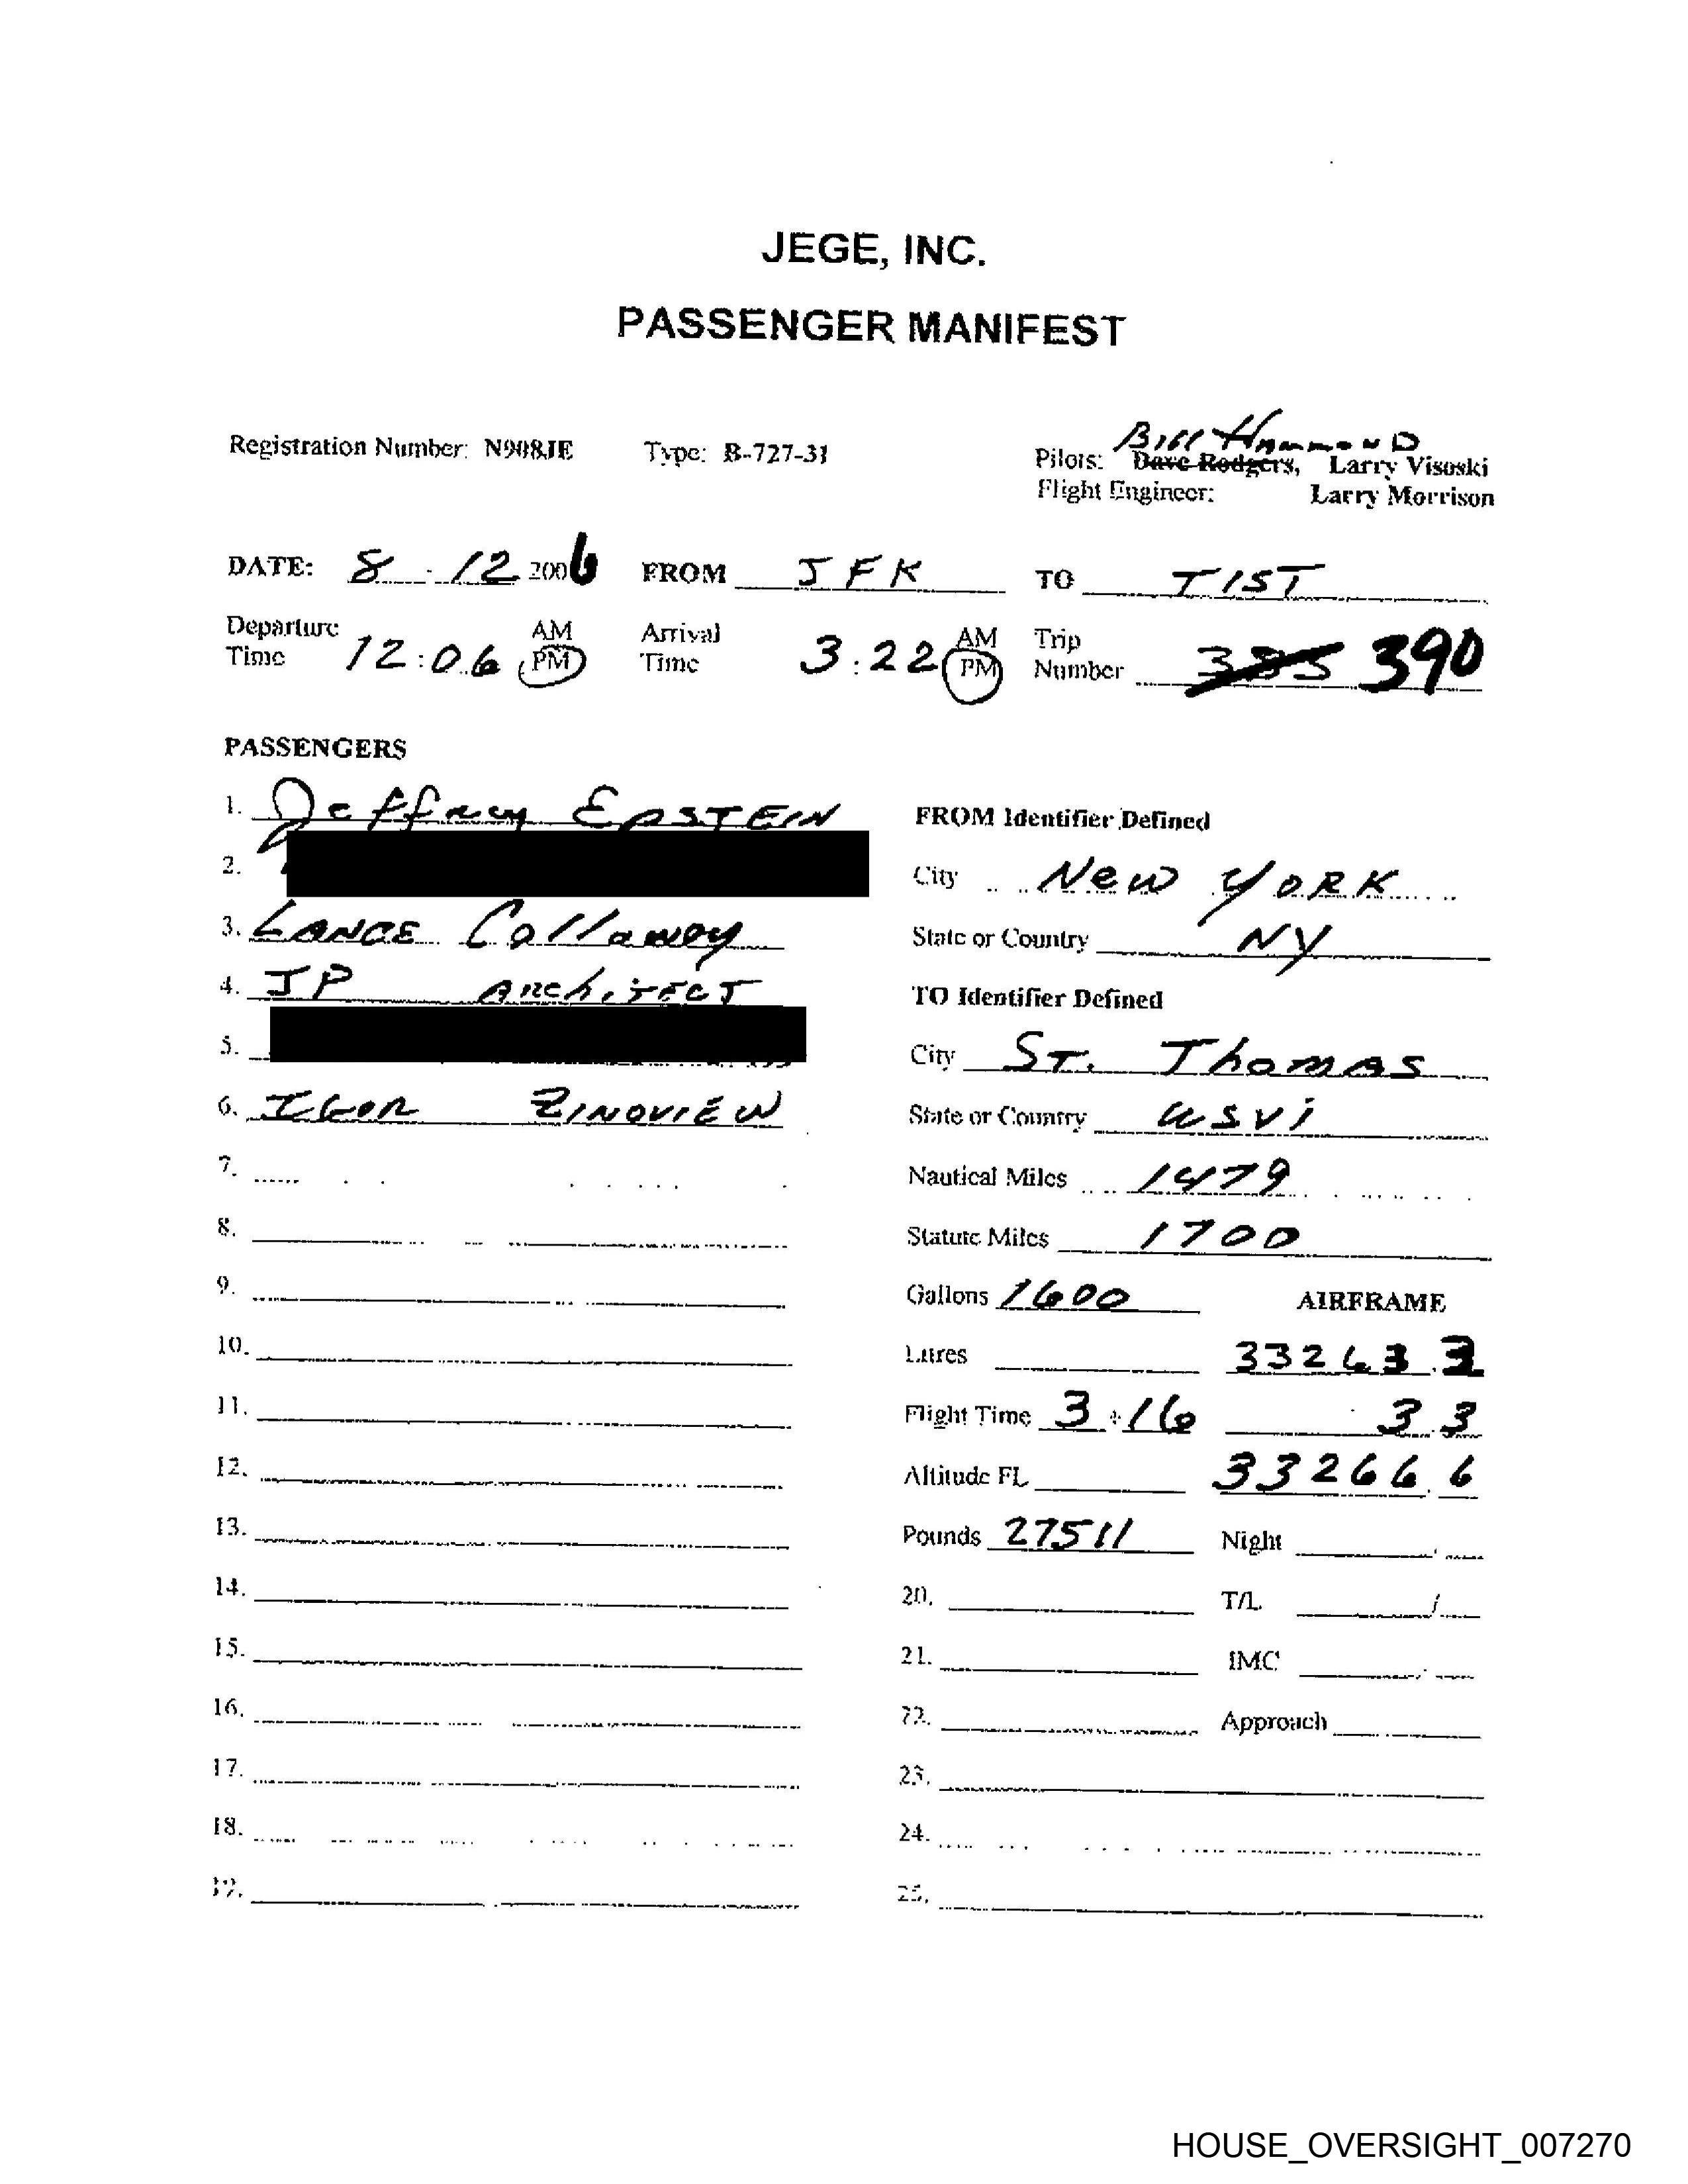 JEGE, INC.
PASSENGER MANIFEST
Registration Number: N908JE Type: B-727-31 Pilots: Bill Hammond Dave Rodgers, Larry Visoski
Flight Engineer: Larry Morrison
DATE: 8 - 12 2006 FROM JFK TO TIST
Departure Time 12:06 AM PM Arrival Time 3:22 AM PM Trip Number 385 390
PASSENGERS
1. Jeffrey EPSTEIN
2.
3. LANCE Calloway
4. JP ARchiTECT
5.
6. IGOR ZINOVIEW
7.
8.
9.
10.
11.
12.
13.
14.
15.
16.
17.
18.
19.
FROM Identifier Defined
City New YORK
State or Country NY
TO Identifier Defined
City ST. ThomAS
State or Country USVI
Nautical Miles 1479
Statute Miles 1700
Gallons 1600 AIRFRAME
Litres 33263.3
Flight Time 3+16 3.3
Altitude FL 33266.6
Pounds 27511 Night
20. T/L /
21. IMC
22. Approach
23.
24.
25.
HOUSE_OVERSIGHT_007270